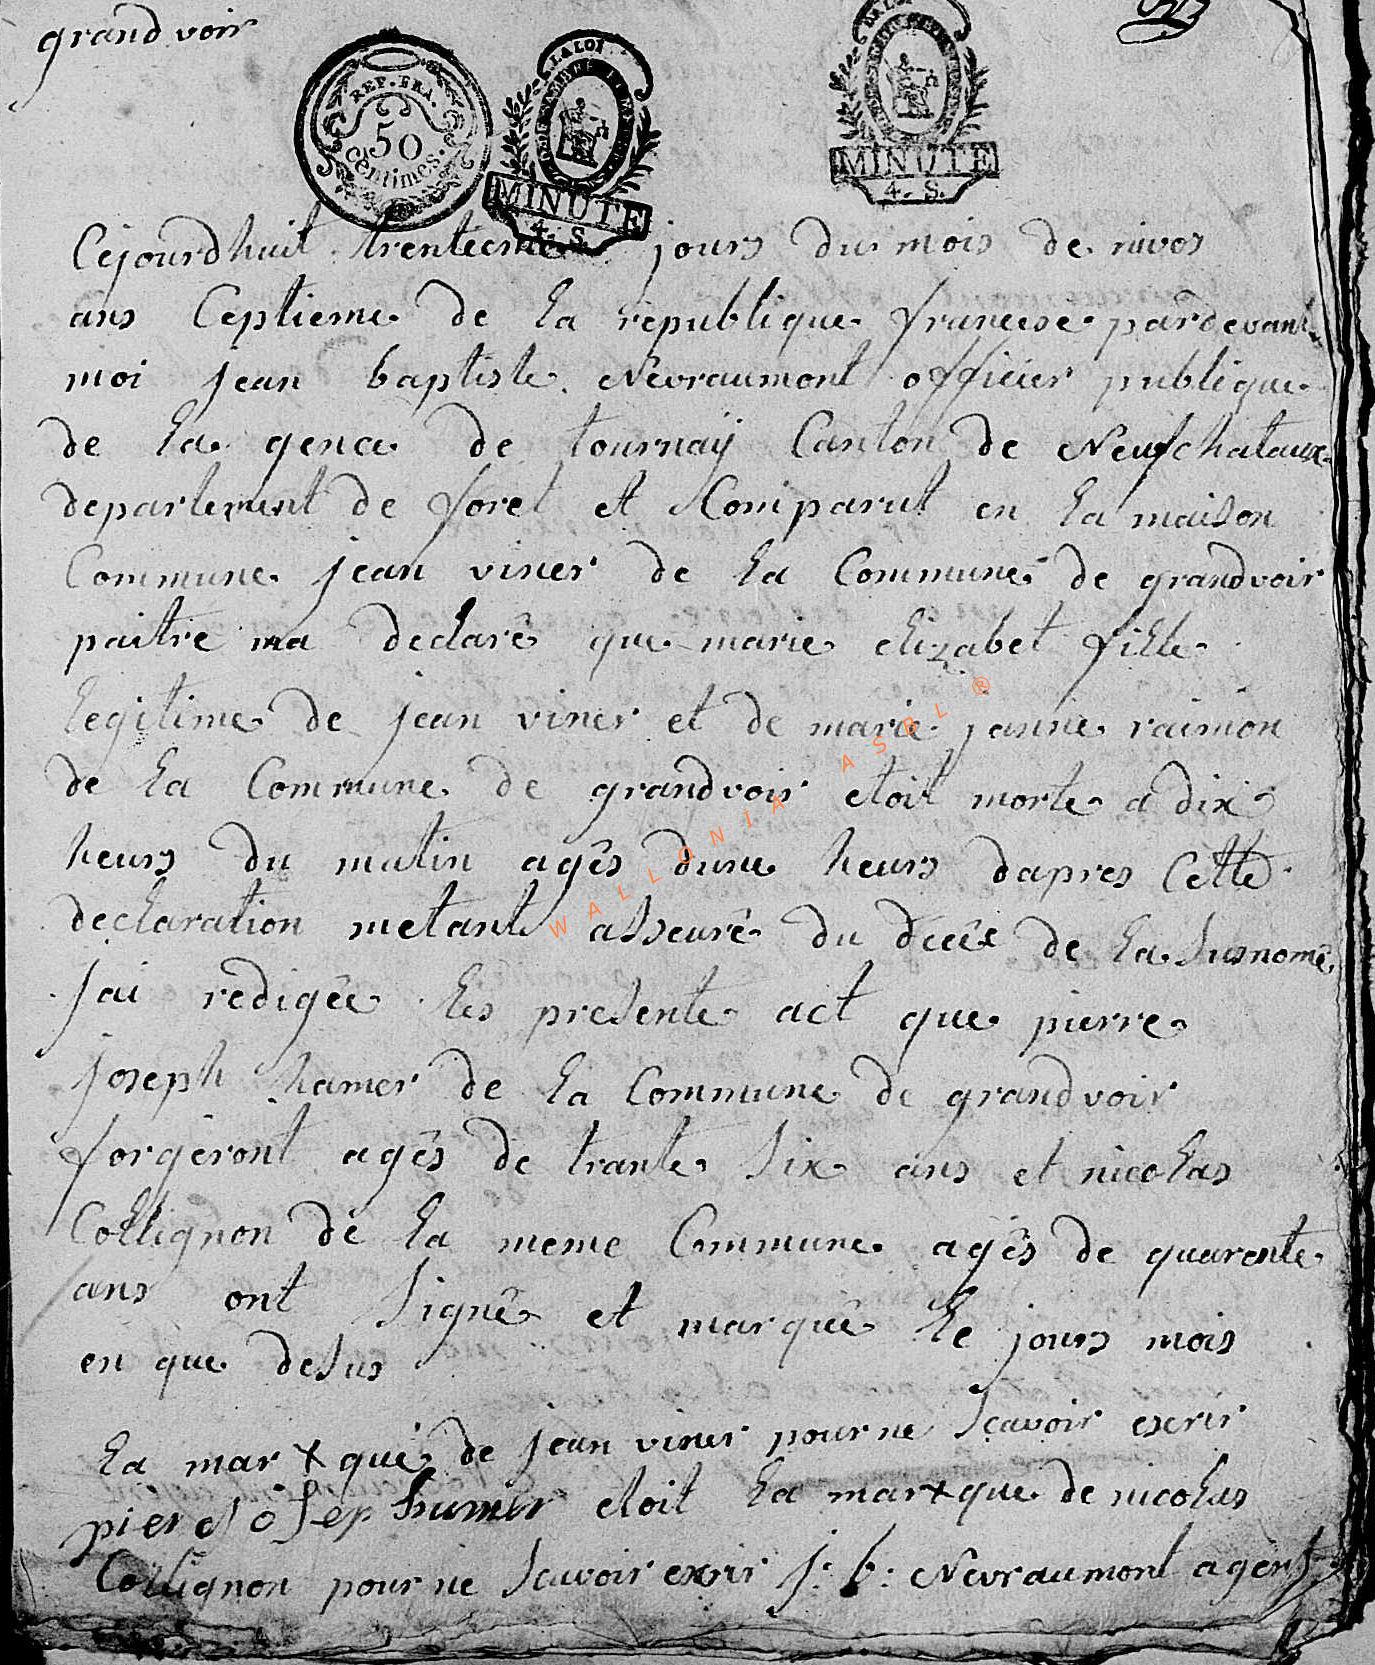 grandvoir
REP. FRA.
50
centimes.
LA LOI
MINUTE
4. S.
LA LOI
MINUTE
4. S.
Cejourdhuit trentieme jours du mois de nivos
ans Ceptieme de la republique franceise pardevant
moi jean baptiste Nevraumont officier publique
de la gence de tournaÿ Canton de Neufchataux
departement de foret et Comparut en la maison
Commune jean viner de la Commune de grandvoir
paitre ma declarê que marie elizabet fille
legitime de jean viner et de marie janne raimon
de la Commune de grandvoir etoit morte a dix
heurs du matin agês dune heurs dapres Cette
declaration metant asseurê du decêe de la susnomê
jai redigêe les presente act que pierre
joseph hamer de la Commune de grandvoir
forgeront agês de trante six ans et nicolas
Collignon de la meme Commune agês de quarente
ans ont signê et marquê le jours mois
en que desus
la mar x que de jean viner pour ne scavoir escrir
pier josep humer etoit la mar x que de nicolas
Collignon pour ne scavoir exrir j: b: Nevraumont agent
WALLONIA ASBL ®